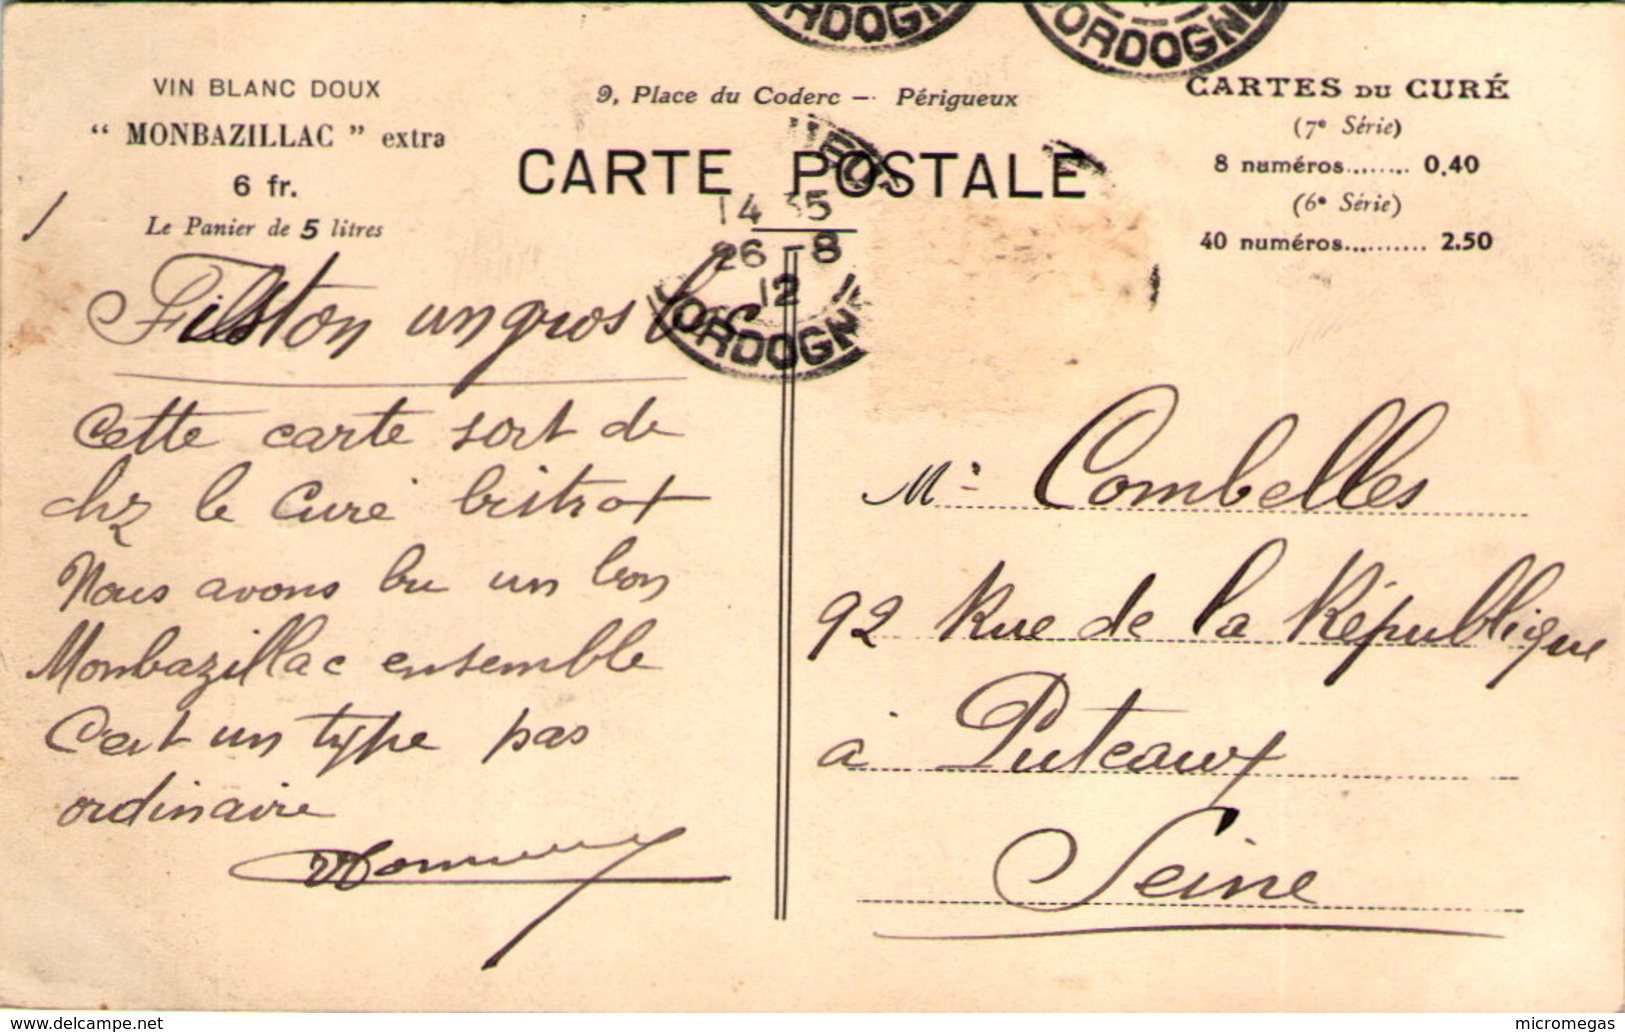 VIN BLANC DOUX
“ MONBAZILLAC ” extra
6 fr.
Le Panier de 5 litres
9, Place du Coderc — Périgueux
CARTE POSTALE
CARTES DU CURÉ
(7e Série)
8 numéros........ 0.40
(6e Série)
40 numéros.......... 2.50
ORDOGNE
ORDOGNE
14 35
26 -8
12
DORDOGNE
Filston un gros bec
Cette carte sort de
chz le Curé bistrot
Nous avons bu un bon
Monbazillac ensemble
C'est un type pas
ordinaire
Mr Combelles
92 Rue de la République
à Puteaux
Seine
www.delcampe.net
micromegas